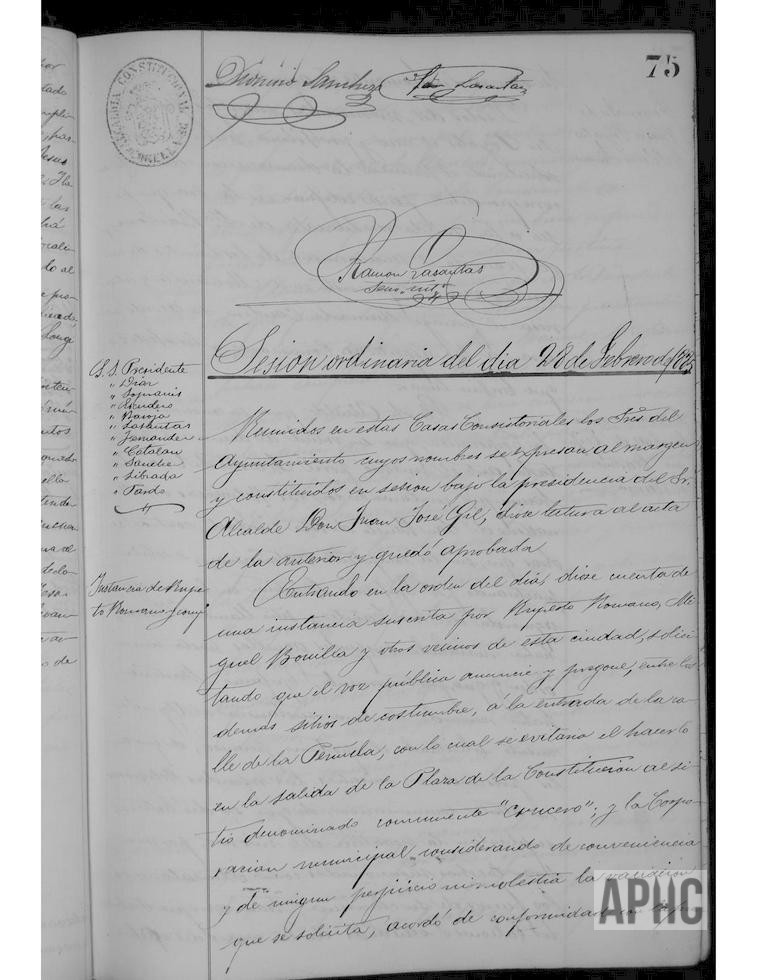 75
Dionisio Sanchez
ALCALDIA CONSTITUCIONAL DE
Ramon Lasantas
Sesion ordinaria del dia 28 de Febrero de
S. S. Presidente
" Diaz
" Sopranis
" Escudero
" Baroja
" Lasantas
" Fernandez
" Catalan
" Sanchez
" Librada
" Pardo
Reunidos en estas Casas Consistoriales los Sres del
Ayuntamiento cuyos nombres se expresan al margen
y constituidos en sesion bajo la presidencia del Sr.
Alcalde Don Juan José Gil, diose lectura al acta
de la anterior y quedó aprobada
Instancia de Rupe-
to Romano y comp
Entrando en la orden del dia, diose cuenta de
una instancia suscrita por Ruperto Romano, Mi
guel Bonilla y otros vecinos de esta ciudad, solici
tando que el voz pública anuncie y pregone, entre los
demas sitios de costumbre, á la entrada de la ca
lle de la Peñuela, con lo cual se evitaria el hacerlo
en la salida de la Plaza de la Constitucion al si
tio denominado comunmente "Crucero"; y la Corpo
racion municipal considerando de conveniencia
y de ningun perjuicio ni molestia la variacion
que se solicita, acordó de conformidad con
APHC